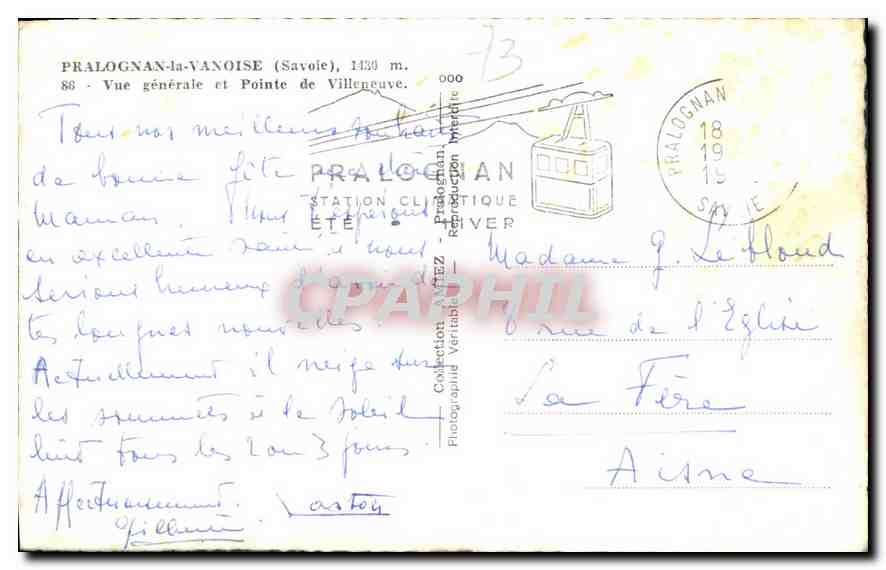 PRALOGNAN-la-VANOISE (Savoie), 1430 m.
86 - Vue générale et Pointe de Villeneuve.
Tous nos meilleurs souhaits
de bonne fête
Maman. Nous t'espérons
en excellente et nous
serions heureux d'avoir de
tes longues nouvelles.
Actuellement il neige sur
les sommets et le soleil
luit tous les 2 ou 3 jours.
Affectueusement.
Gaston
ooo
Collection AMIEZ - Pralognan.
Photographie Véritable — Reproduction Interdite
73
PRALOGNAN
STATION CLIMATIQUE
ÉTÉ • HIVER
PRALOGNAN
18
19
SAVOIE
Madame G. Leblond
8 rue de l'Eglise
La Fère
Aisne
CPAPHIL